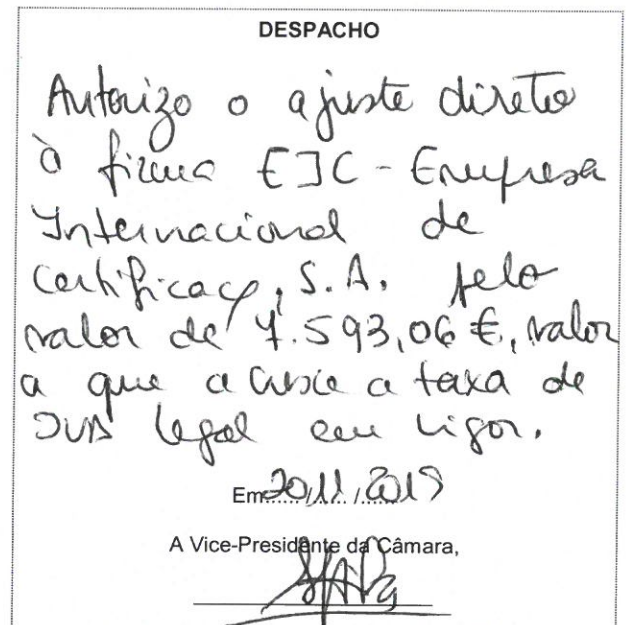 DESPACHO
Autorizo o ajuste direto
à firma EIC - Empresa
Internacional de
Certificaçº, S.A. pelo
valor de 7.593,06 €, valor
a que acresce a taxa de
IVA legal em vigor.
Em 20/11/2019
A Vice-Presidente da Câmara,